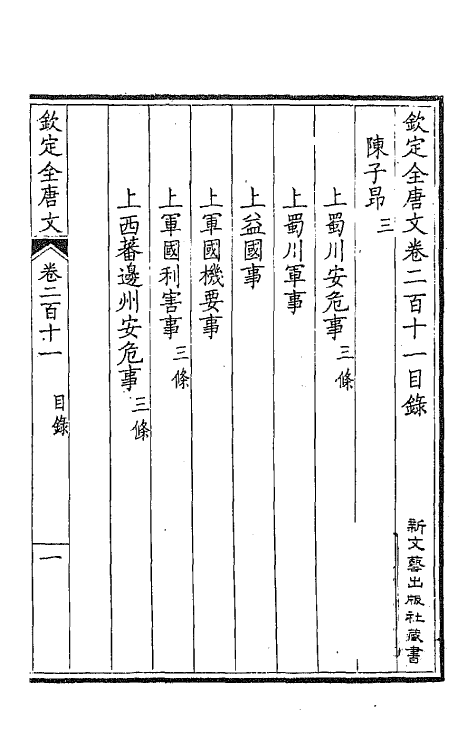 欽定全唐文卷二百十一目錄
新文藝出版社藏書
陳子昂三
上蜀川安危事三條
上蜀川軍事
上益國事
上軍國機要事
上軍國利害事三條
上西蕃邊州安危事三條
欽定全唐文
卷二百十一
目錄
一